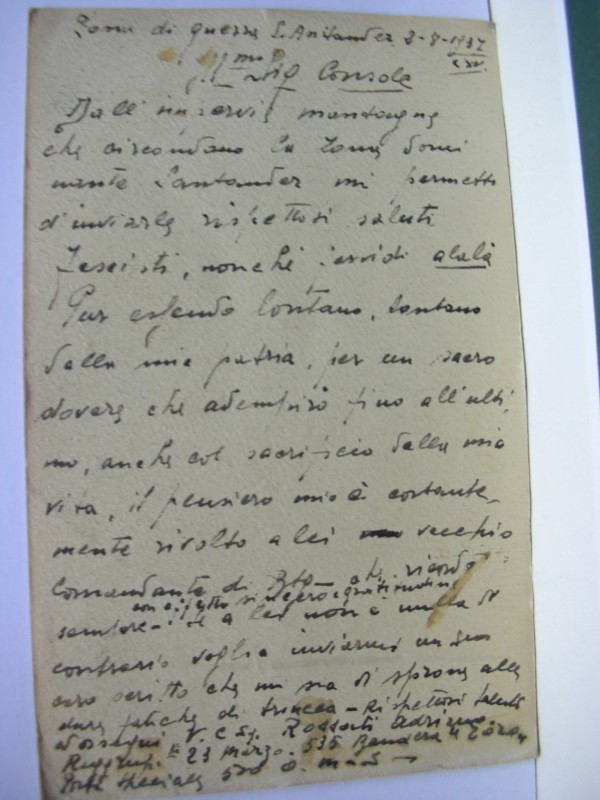 Zona di guerra S. Antander 2-8-1937
XV.
Ill.mo Sig Console
Dall' impervie montagne
che circondano la zona domi
nante Santander mi permetto
d'inviarle rispettosi saluti
Fascisti, nonchè fervidi alalà
Pur essendo lontano, lontano
dalla mia patria, per un sacro
dovere che adempirò fino all'ulti
mo, anche col sacrificio della mia
vita, il pensiero mio è costante-
mente rivolto a lei vecchio
Comandante di Btg che ricordo
con affetto sincero e gratitudine
sempre - Se a lei non è nulla di
contrario voglia inviarmi un suo
caro scritto che mi sia di sprone alle
dure fatiche di trincea - Rispettosi saluti
d'ossequi V. C Sq. Rossati Adriano
Ruggrup. "23 Marzo. 535 Bandera "
Posta speciale 500